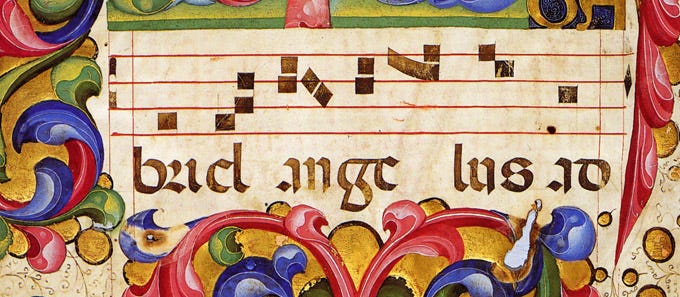 briel ange lus ad